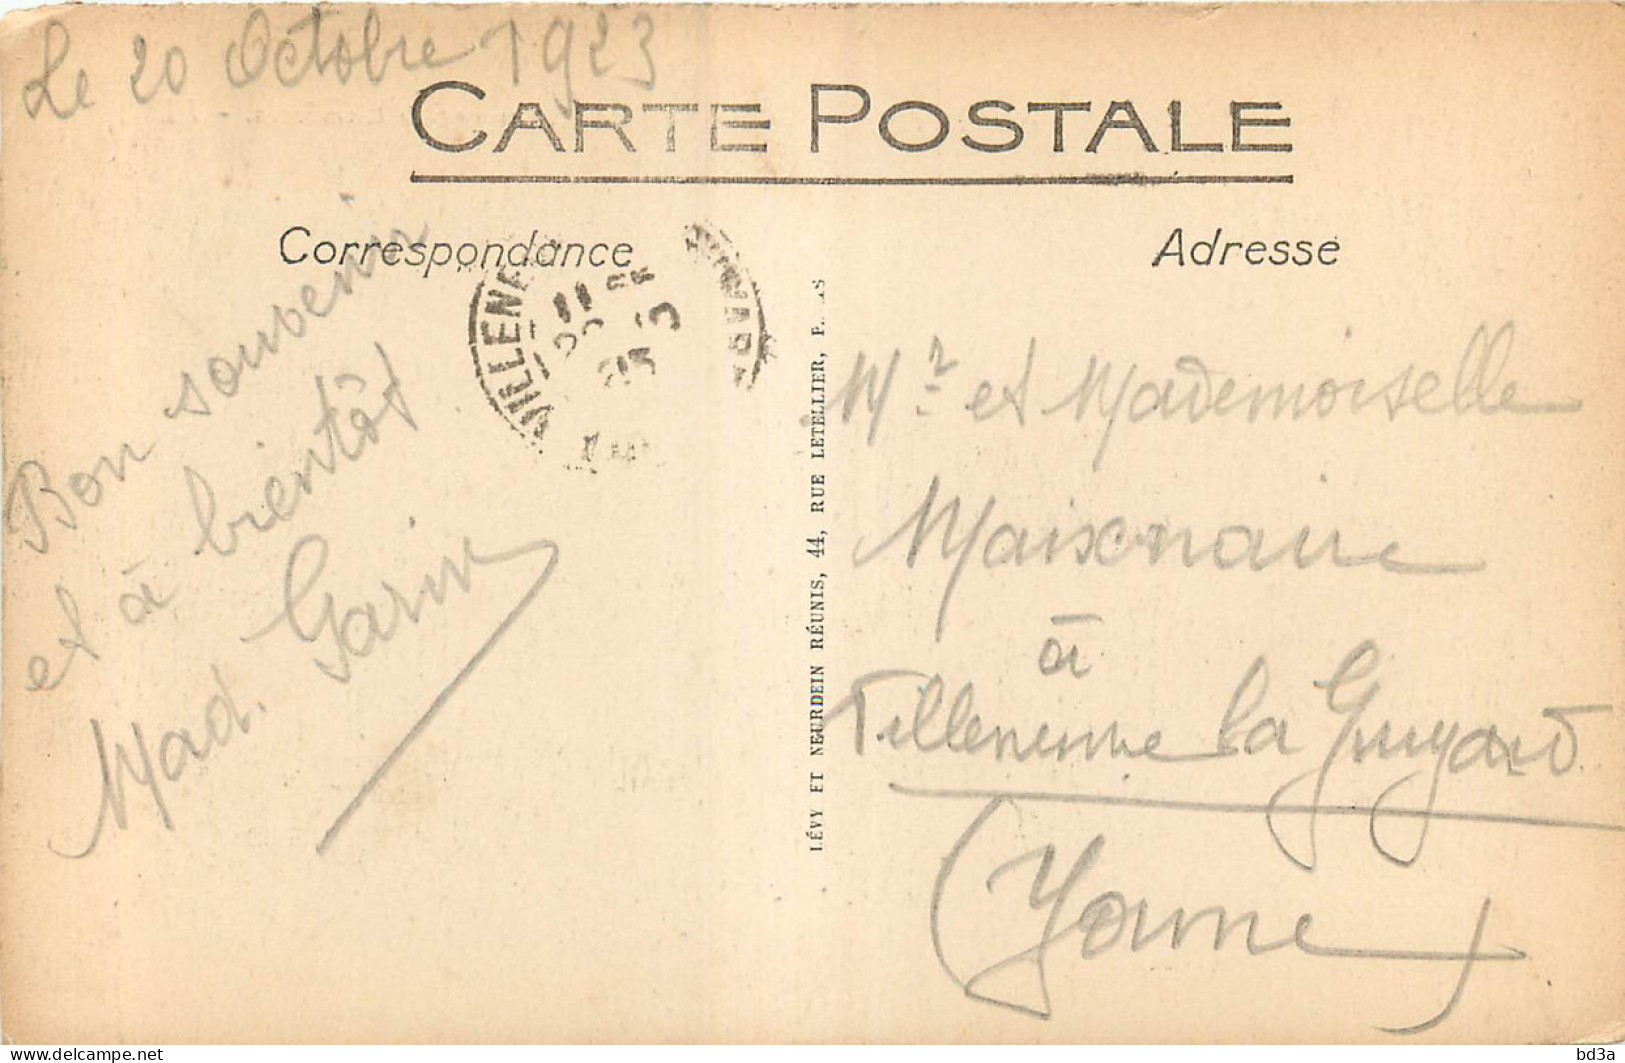 Le 20 Octobre 1923
CARTE POSTALE
Correspondance
Adresse
Bon souvenir
et à bientôt
Mad. Garin
VILLENE
LÉVY ET NEURDEIN RÉUNIS, 44, RUE LETELLIER,
Mr et Mademoiselle
Maisonnaire
à
Villeneuve la Guyard
(Yonne)
delcampe.net
bd3a